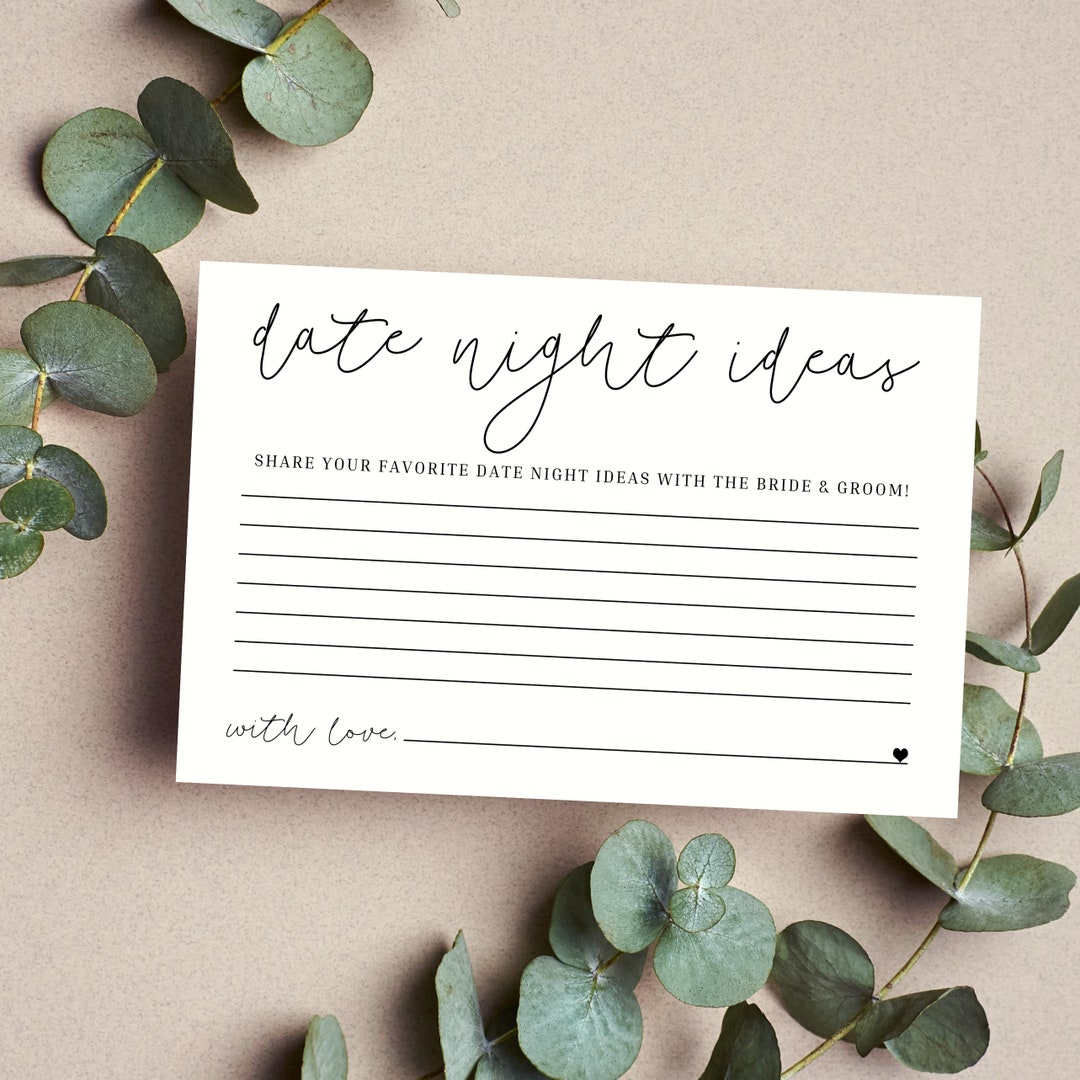 date night ideas
SHARE YOUR FAVORITE DATE NIGHT IDEAS WITH THE BRIDE & GROOM!
with love,